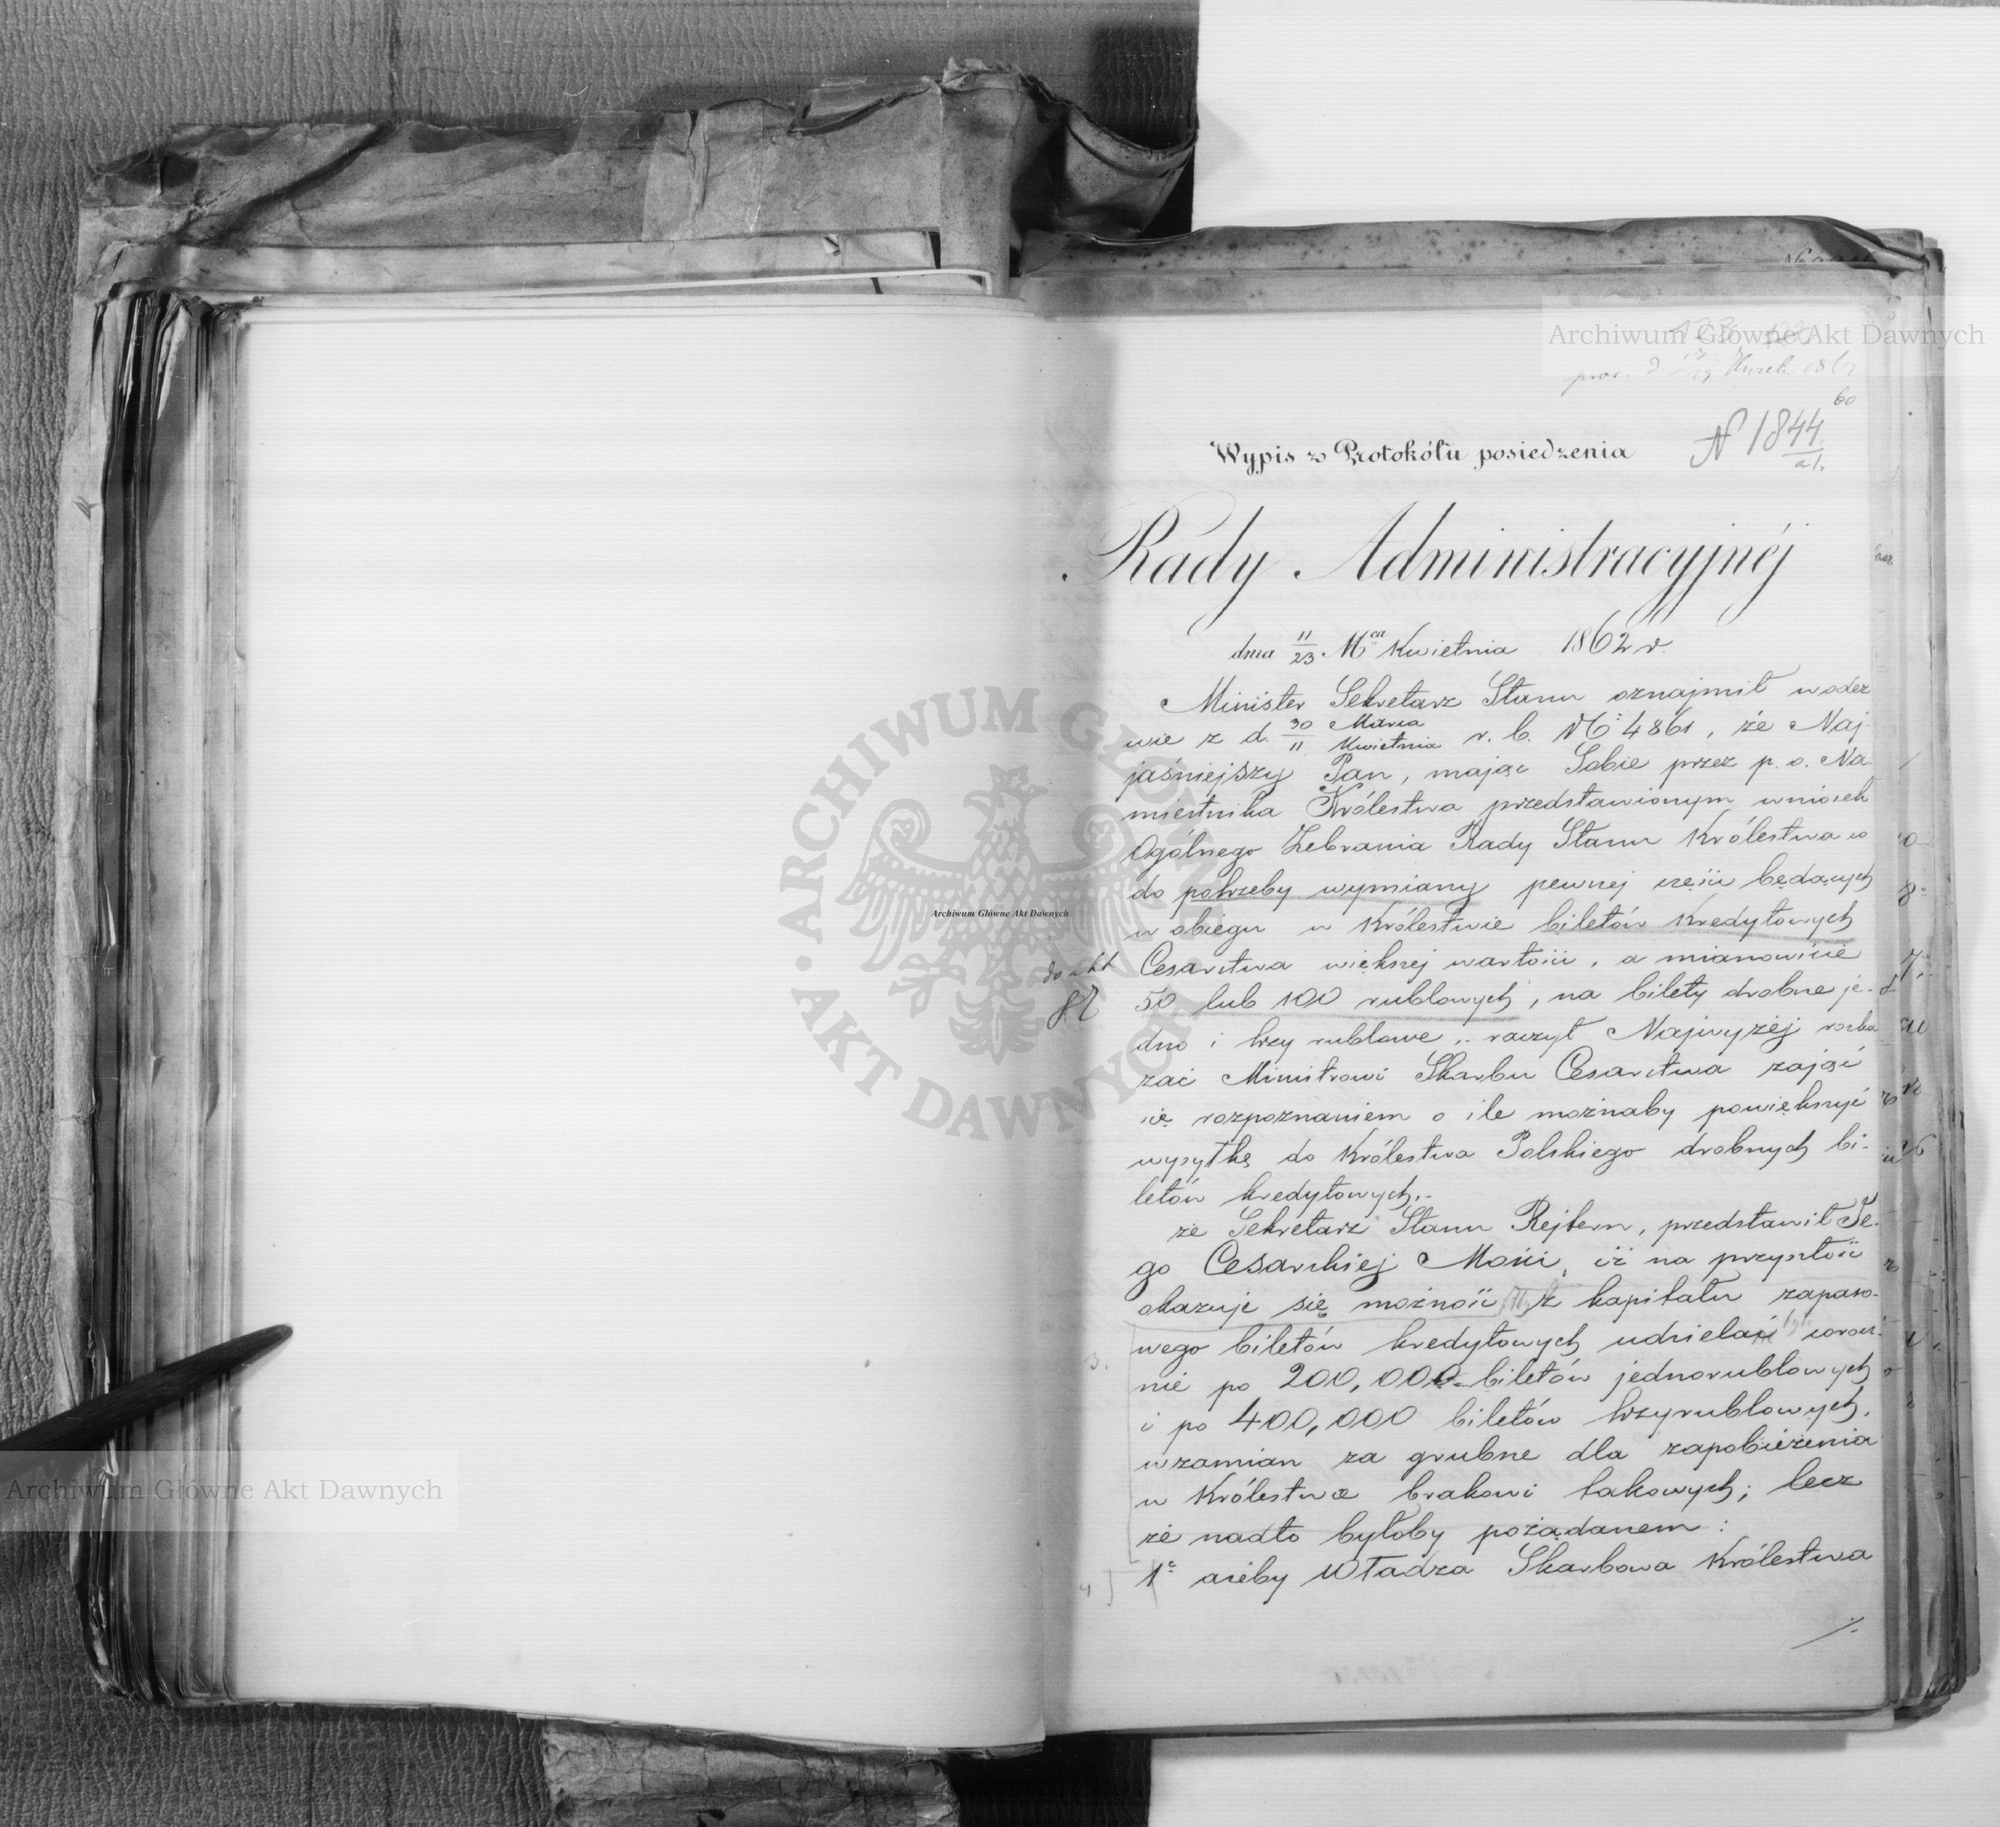 Archiwum Główne Akt Dawnych
60
N 1844
Wypis z Protokółu posiedzenia
Rady Administracyjnéj
dnia 11/23 Mca Kwietnia 1862 r.
Minister Sekretarz Stanu oznajmił w odez
wie z d. 30 Marca / 11 Kwietnia r. b. No 4861, że Naj-
jaśniejszy Pan, mając Sobie przez p. o. Na
miestnika Królestwa przedstawionym wniosek
Ogólnego Zebrania Rady Stanu Królestwa co
do potrzeby wymiany pewnej części będących
w obiegu w Królestwie biletów Kredytowych
Cesarstwa większej wartości, a mianowicie
do akt
50 lub 100 rublowych, na bilety drobne je-
dno i trzy rublowe, raczył Najwyżéj rozka
zać Ministrowi Skarbu Cesarstwa zająć
się rozpoznaniem o ile możnaby powiększyć
wysyłkę do Królestwa Polskiego drobnych bi-
letów kredytowych.-
że Sekretarz Stanu Rejtern, przedstawił Je-
go Cesarskiej Mości, iż na przyszłość
okazuje się możność z kapitału zapaso-
wego biletów kredytowych udzielać corocz-
nie po 200,000 biletów jednorublowych
i po 400,000 biletów trzyrublowych,
wzamian za grubsze dla zapobieżenia
w Królestwie brakowi takowych; lecz
że nadto byłoby pożądanem:
1e ażeby Władza Skarbowa Królestwa
./.
ARCHIWUM GŁÓWNE AKT DAWNYCH
Archiwum Główne Akt Dawnych
Archiwum Główne Akt Dawnych